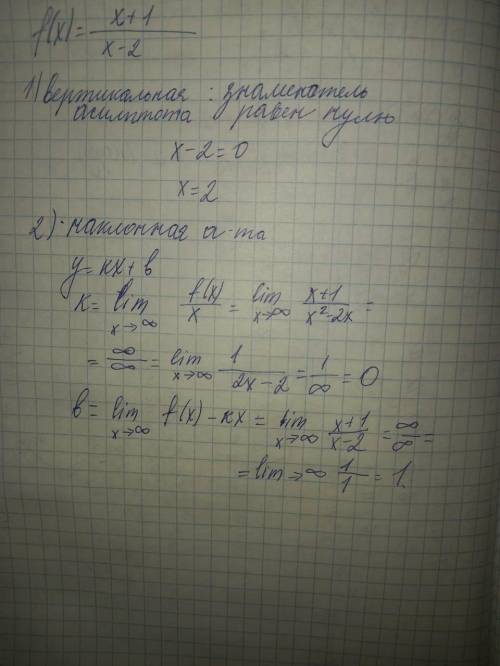 f(x) = (x+1)/(x-2)
1) вертикальная : знаменатель
асимптота равен нулю
x-2=0
x=2
2) наклонная а-та
y=кx+в
к= lim x→∞ f(x)/x = lim x→∞ (x+1)/(x²-2x) =
= ∞/∞ = lim x→∞ 1/(2x-2) = 1/∞ = 0
в= lim x→∞ f(x)-кx = lim x→∞ (x+1)/(x-2) = ∞/∞ =
= lim→∞ 1/1 = 1.